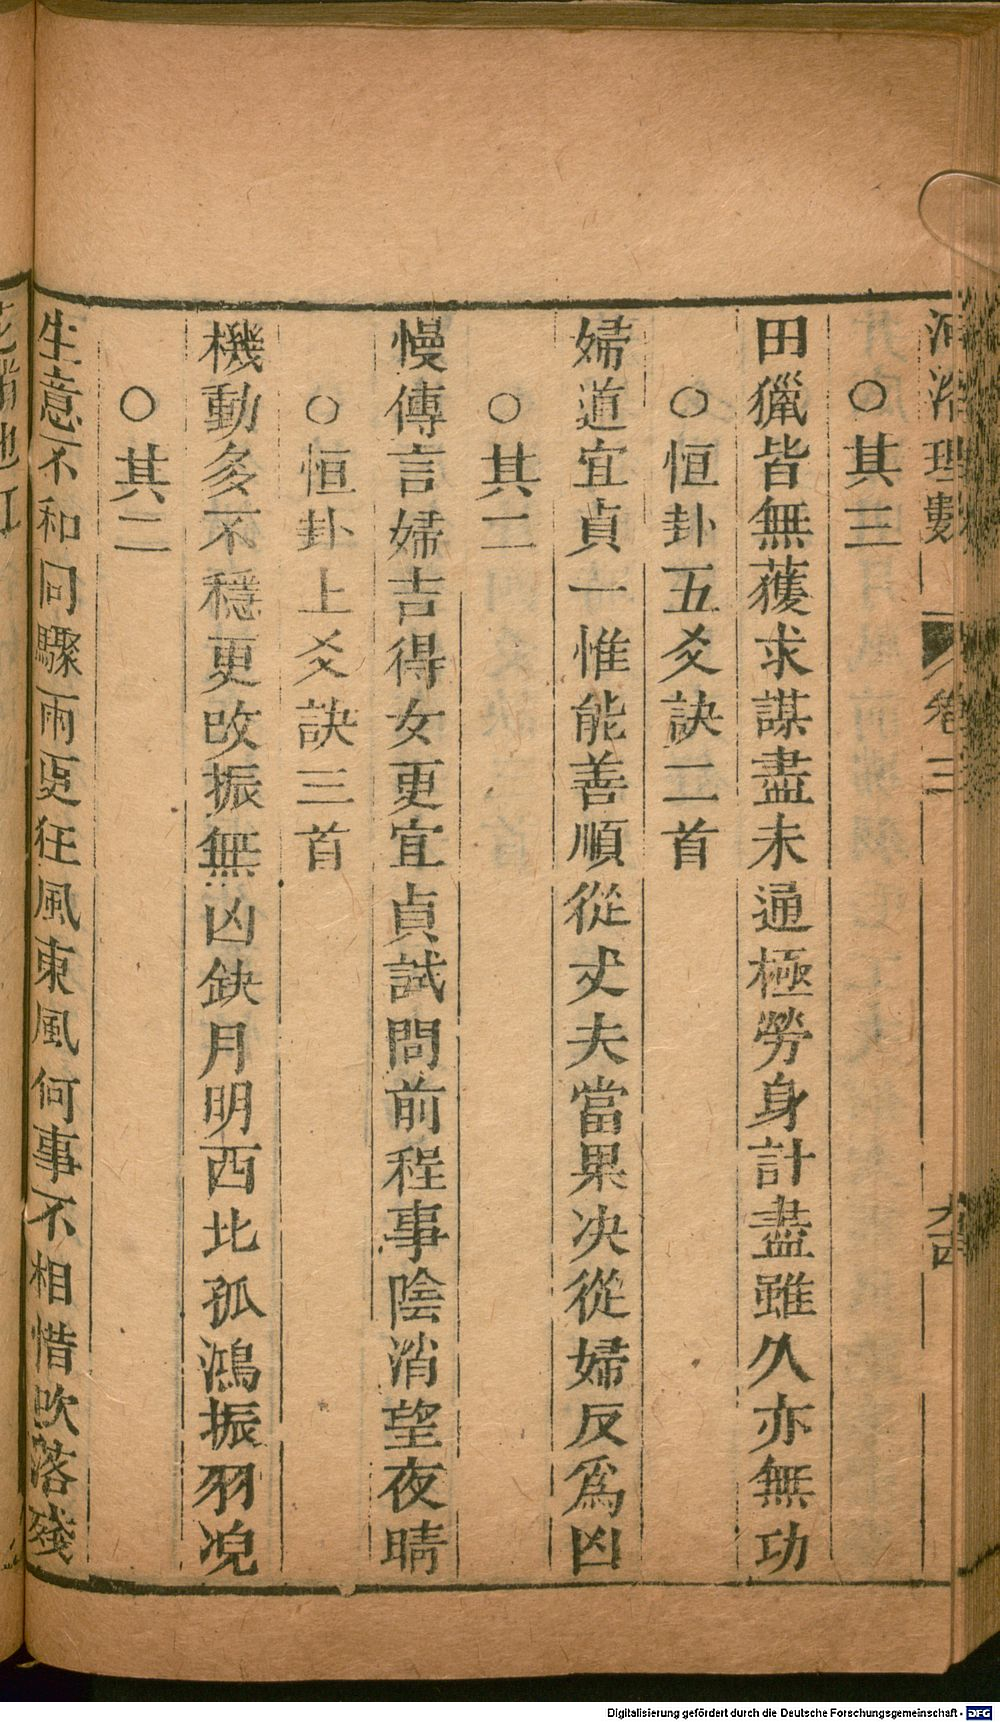 河洛理數 卷三
○其三
田獵皆無獲求謀盡未通極勞身計盡雖久亦無功
○恒卦五爻訣二首
婦道宜貞一惟能善順從丈夫當果决從婦反爲凶
○其二
慢傳言婦吉得女更宜貞試問前程事陰消望夜晴
○恒卦上爻訣三首
機動多不穩更改振無凶缺月明西北孤鴻振羽
○其二
生意不和同驟雨更狂風東風何事不相惜吹落殘
Digitalisierung gefördert durch die Deutsche Forschungsgemeinschaft - DFG